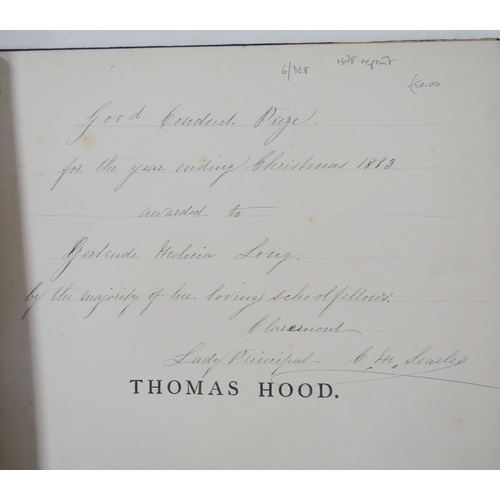 6/328 1878 reprint
£50.00
Good Conduct Prize.
for the year ending Christmas 1883
awarded to
Gertrude Long.
by the majority of her loving schoolfellows.
Claremont
Lady Principal C. M.
THOMAS HOOD.